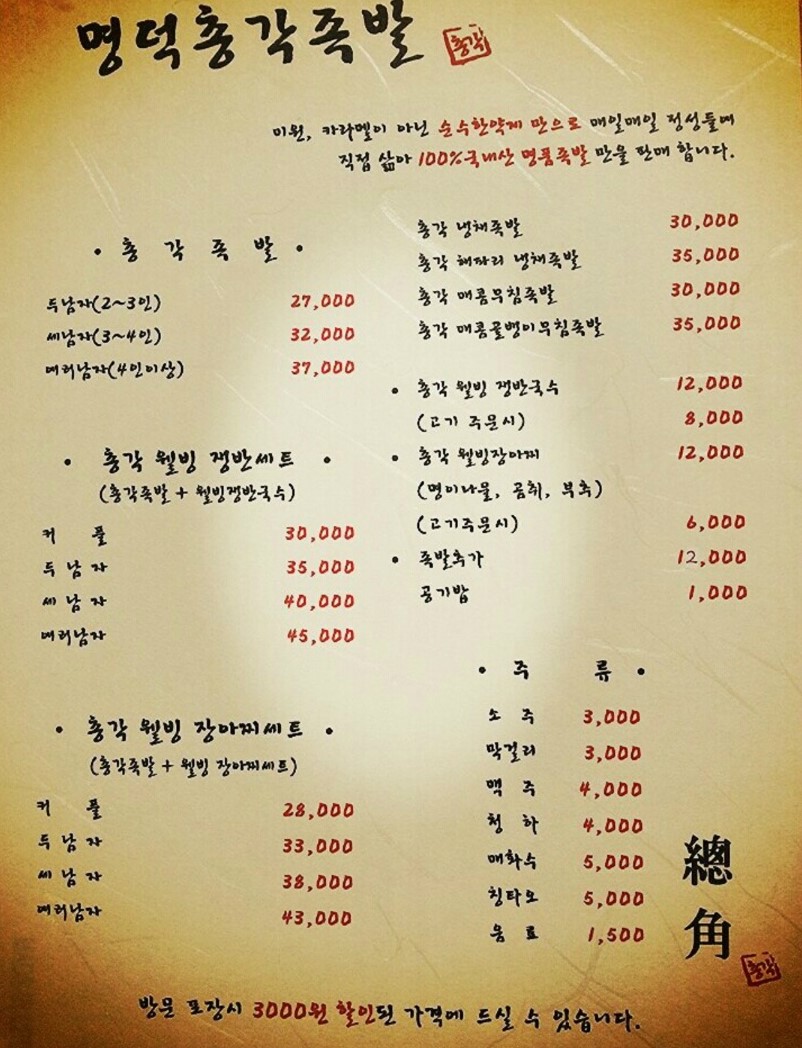 명덕총각족발 총각
미원, 카라멜이 아닌 순수한약제 만으로 매일매일 정성들여
직접 삶아 100%국내산 명품족발 만을 판매 합니다.
• 총 각 족 발 •
두남자(2~3인) 27,000
세남자(3~4인) 32,000
여러남자(4인이상) 37,000
• 총각 웰빙 쟁반세트 •
(총각족발 + 웰빙쟁반국수)
커 플 30,000
두 남 자 35,000
세 남 자 40,000
여러남자 45,000
• 총각 웰빙 장아찌세트 •
(총각족발 + 웰빙 장아찌세트)
커 플 28,000
두 남 자 33,000
세 남 자 38,000
여러남자 43,000
총각 냉채족발 30,000
총각 해파리 냉채족발 35,000
총각 매콤무침족발 30,000
총각 매콤골뱅이무침족발 35,000
• 총각 웰빙 쟁반국수 12,000
(고기 주문시) 8,000
• 총각 웰빙장아찌 12,000
(명이나물, 곰취, 부추)
(고기주문시) 6,000
• 족발추가 12,000
공기밥 1,000
• 주 류 •
소 주 3,000
막걸리 3,000
맥 주 4,000
청 하 4,000
매화수 5,000
칭타오 5,000
음 료 1,500
總角
총각
방문 포장시 3000원 할인된 가격에 드실 수 있습니다.